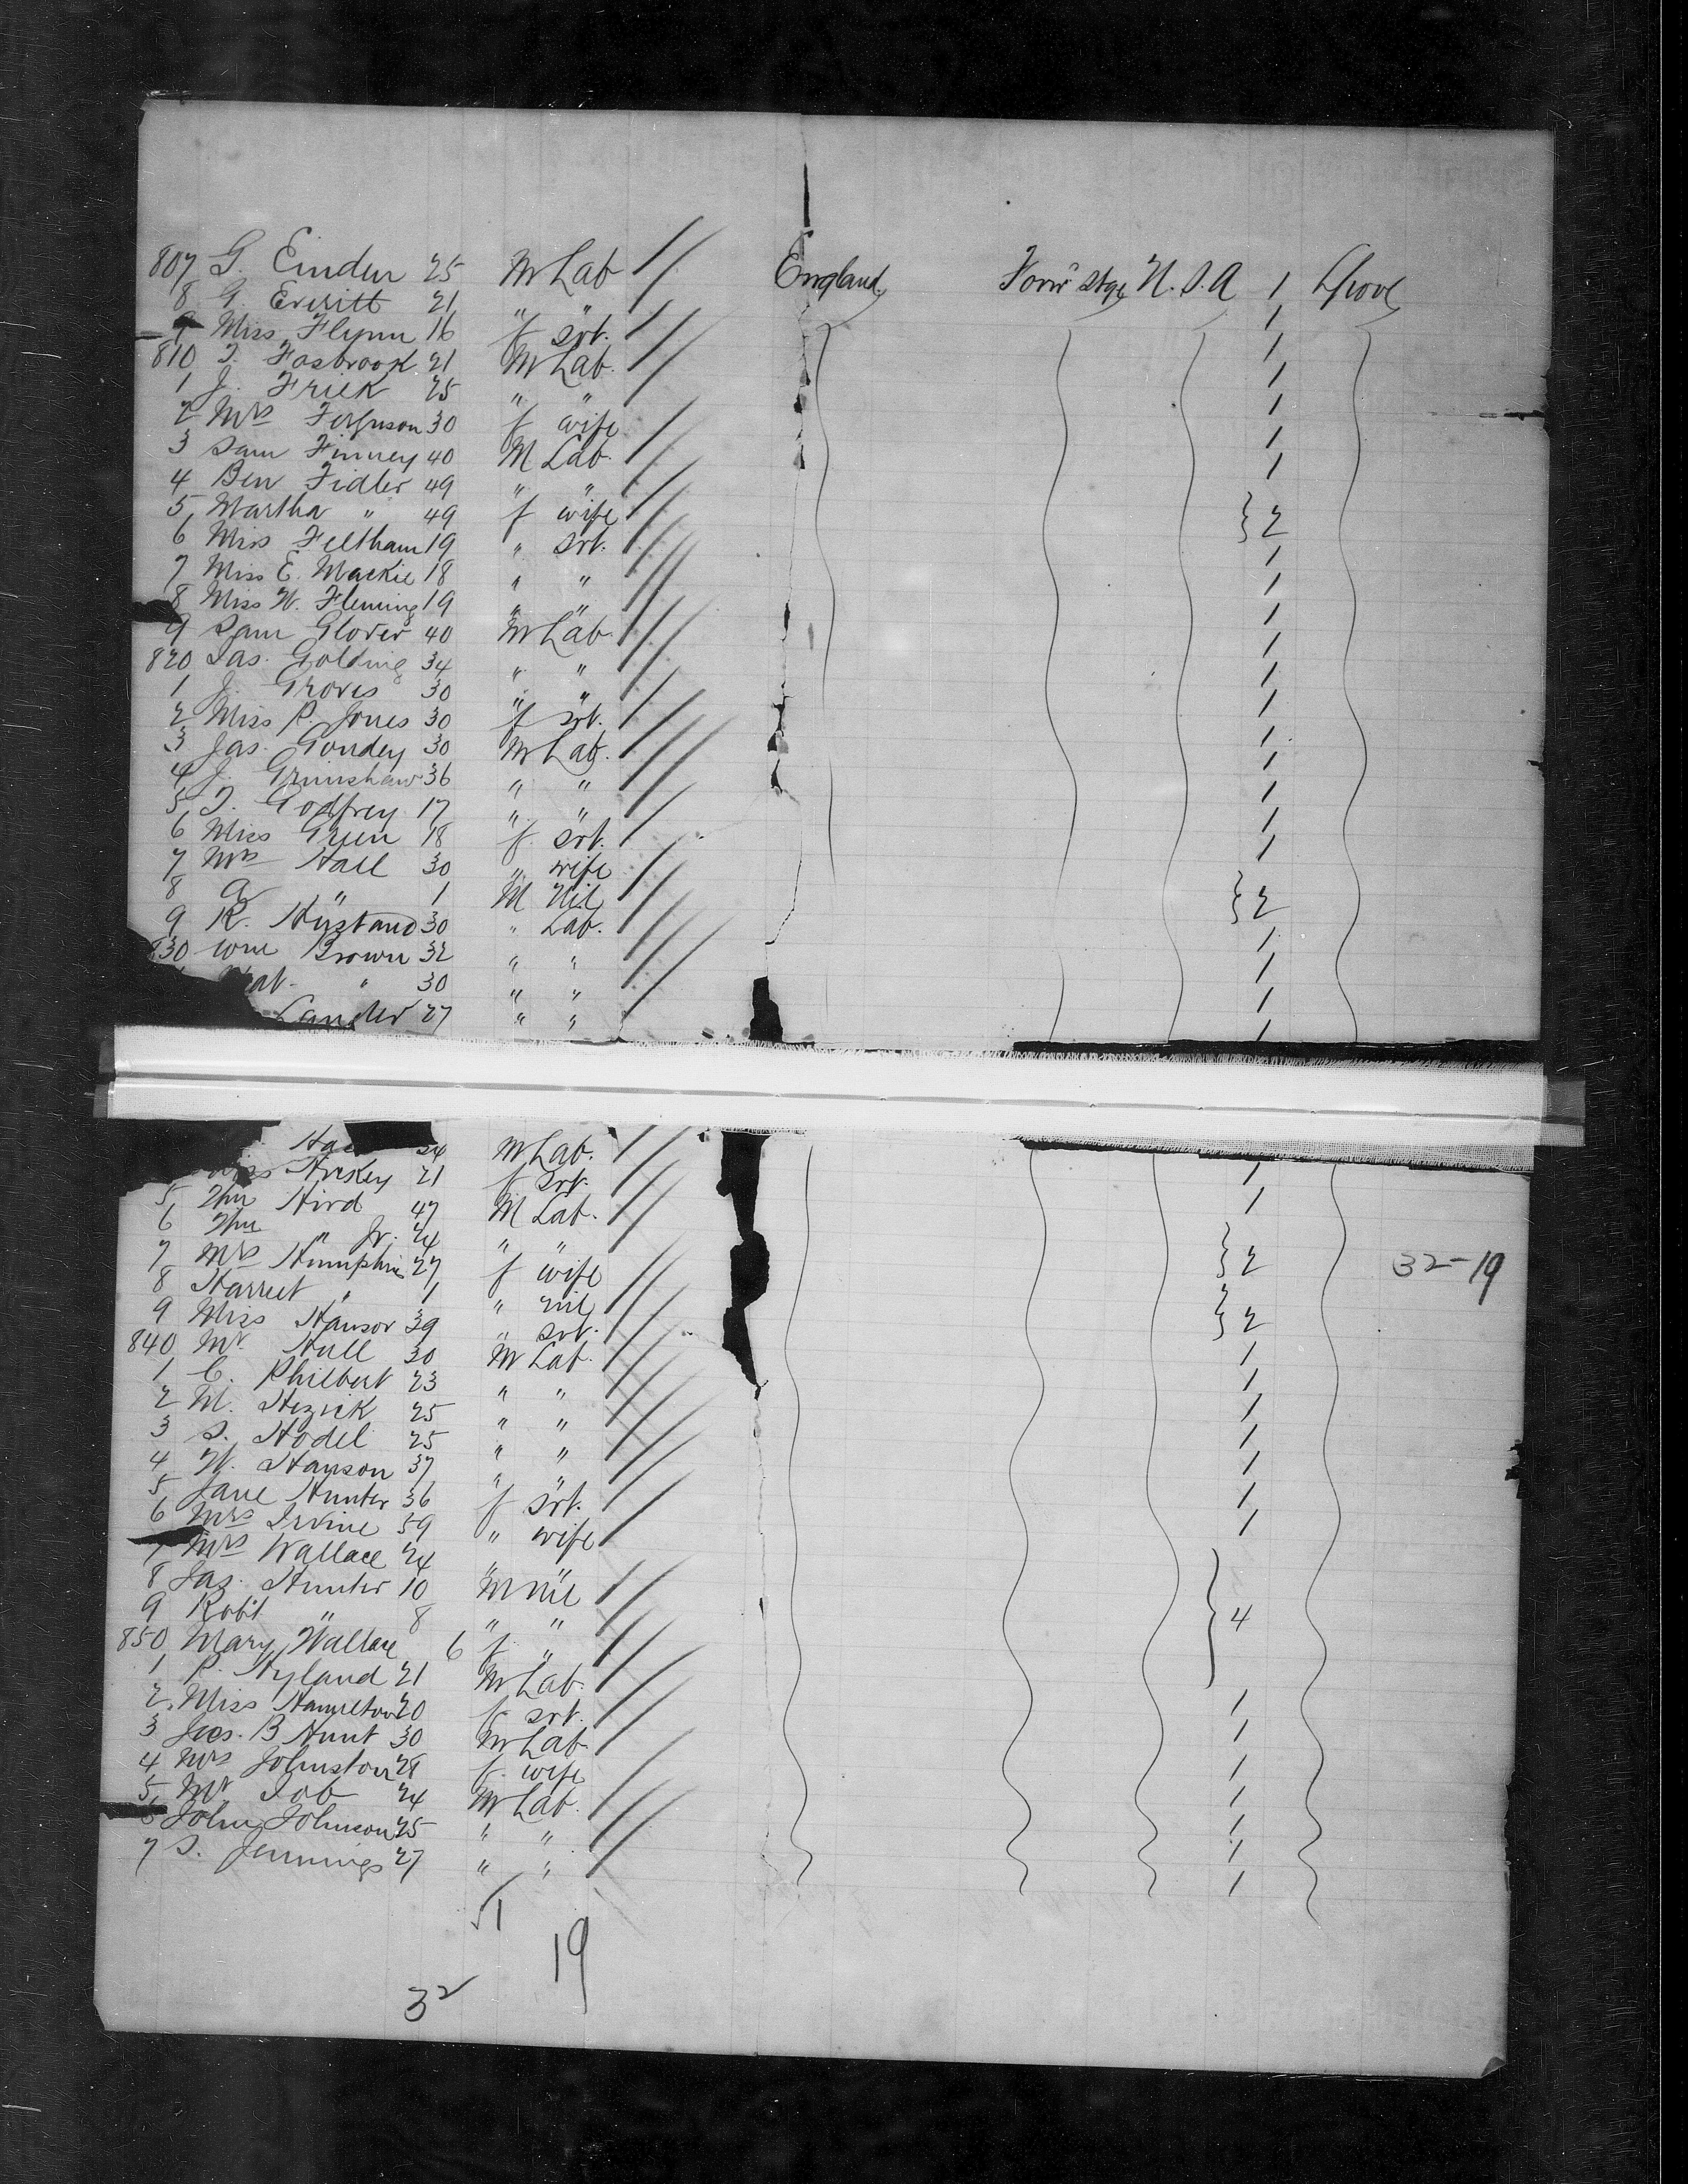 807 G. Einder 25 M Lab England Forw'd Stge U.S.A 1 L'pool
8 G. Everitt 21 " " 1
9 Miss Flynn 16 f srt. 1
810 T. Fosbrook 21 M Lab. 1
1 J. Frick 25 " " 1
2 Mrs Ferguson 30 f wife 1
3 Sam Finney 40 M Lab. 1
4 Ben Fidler 49 " "
5 Martha " 49 f wife } 2
6 Miss Feltham 19 " srt. 1
7 Miss E. Mackie 18 " " 1
8 Miss W. Fleming 19 " " 1
9 Sam Glover 40 M Lab. 1
820 Jas. Golding 34 " " 1
1 J. Groves 30 " " 1
2 Miss P. Jones 30 f srt. 1
3 Jas. Goudey 30 M Lab. 1
4 J. Grimshaw 36 " " 1
5 T. Godfrey 17 " " 1
6 Miss Green 18 f. srt. 1
7 Mrs Hall 30 " wife
8 A " 1 M Nil } 2
9 R. 30 " Lab. 1
830 Wm Brown 32 " " 1
" 30 " " 1
27 " " 1
M Lab.
21 f srt. 1
5 Thos Hird 47 M Lab.
6 Thos " Jr. 24 " " } 2
7 Mrs Humphries 27 f wife 32-19
8 Harriet " 1 " nil } 2
9 Miss Hansor 39 " srt. 1
840 Mr. Hall 30 M Lab. 1
1 C. Philbert 23 " " 1
2 M. Hezick 25 " " 1
3 S. Hodel 25 " " 1
4 W. Hanson 37 " " 1
5 Jane Hunter 36 f srt.
6 Mrs Irvine 59 " wife
7 Mrs Wallace 24 "
8 Jas. Hunter 10 M nil
9 Robt " 8 " " } 4
850 Mary Wallace 6 f "
1 P. Hyland 21 M Lab. 1
2 Miss Hamilton 20 f srt. 1
3 Jas. B Hunt 30 M Lab. 1
4 Mrs Johnston 28 f. wife 1
5 Mr Job 24 M Lab. 1
6 John Johnson 25 " " 1
7 S. Jennings 27 " " 1
51
19
32